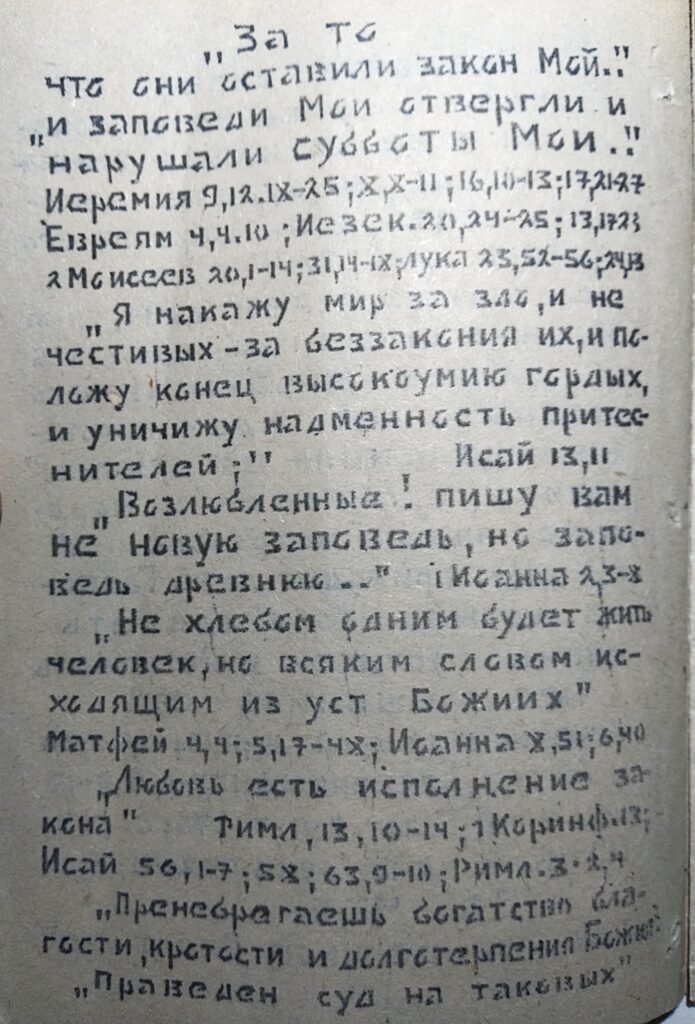 „За то
что они оставили закон Мой.."
„и заповеди Мои отвергли и
нарушали субботы Мои.."
Иеремия 9,12.IX-25; X,X-11; 16,10-13; 17,21-27
Евреям 4,4.10; Иезек. 20,24-25; 13,1723
2 Моисеев 20,1-14; 31,14-IX; лука 23,52-56;
„Я накажу мир за зло, и не
честивых - за беззакония их, и по-
ложу конец высокоумию гордых,
и уничижу надменность притес-
нителей;" Исай 13,11
„Возлюбленные! пишу вам
не новую заповедь, но запо-
ведь древнюю.." 1 Иоанна 2,3-8
„Не хлебом одним будет жить
человек, но всяким словом ис-
ходящим из уст Божиих"
Матфей 4,4; 5,17-4X; Иоанна X,51; 6,40
„Любовь есть исполнение за-
кона" Римл, 13, 10-14; 1 Коринф. 13;
Исай 56,1-7; 58; 63,9-10; Римл. 3. 2,4
„Пренебрегаешь богатство бла-
гости, кротости и долготерпения Божия?
„Праведен суд на таковых"